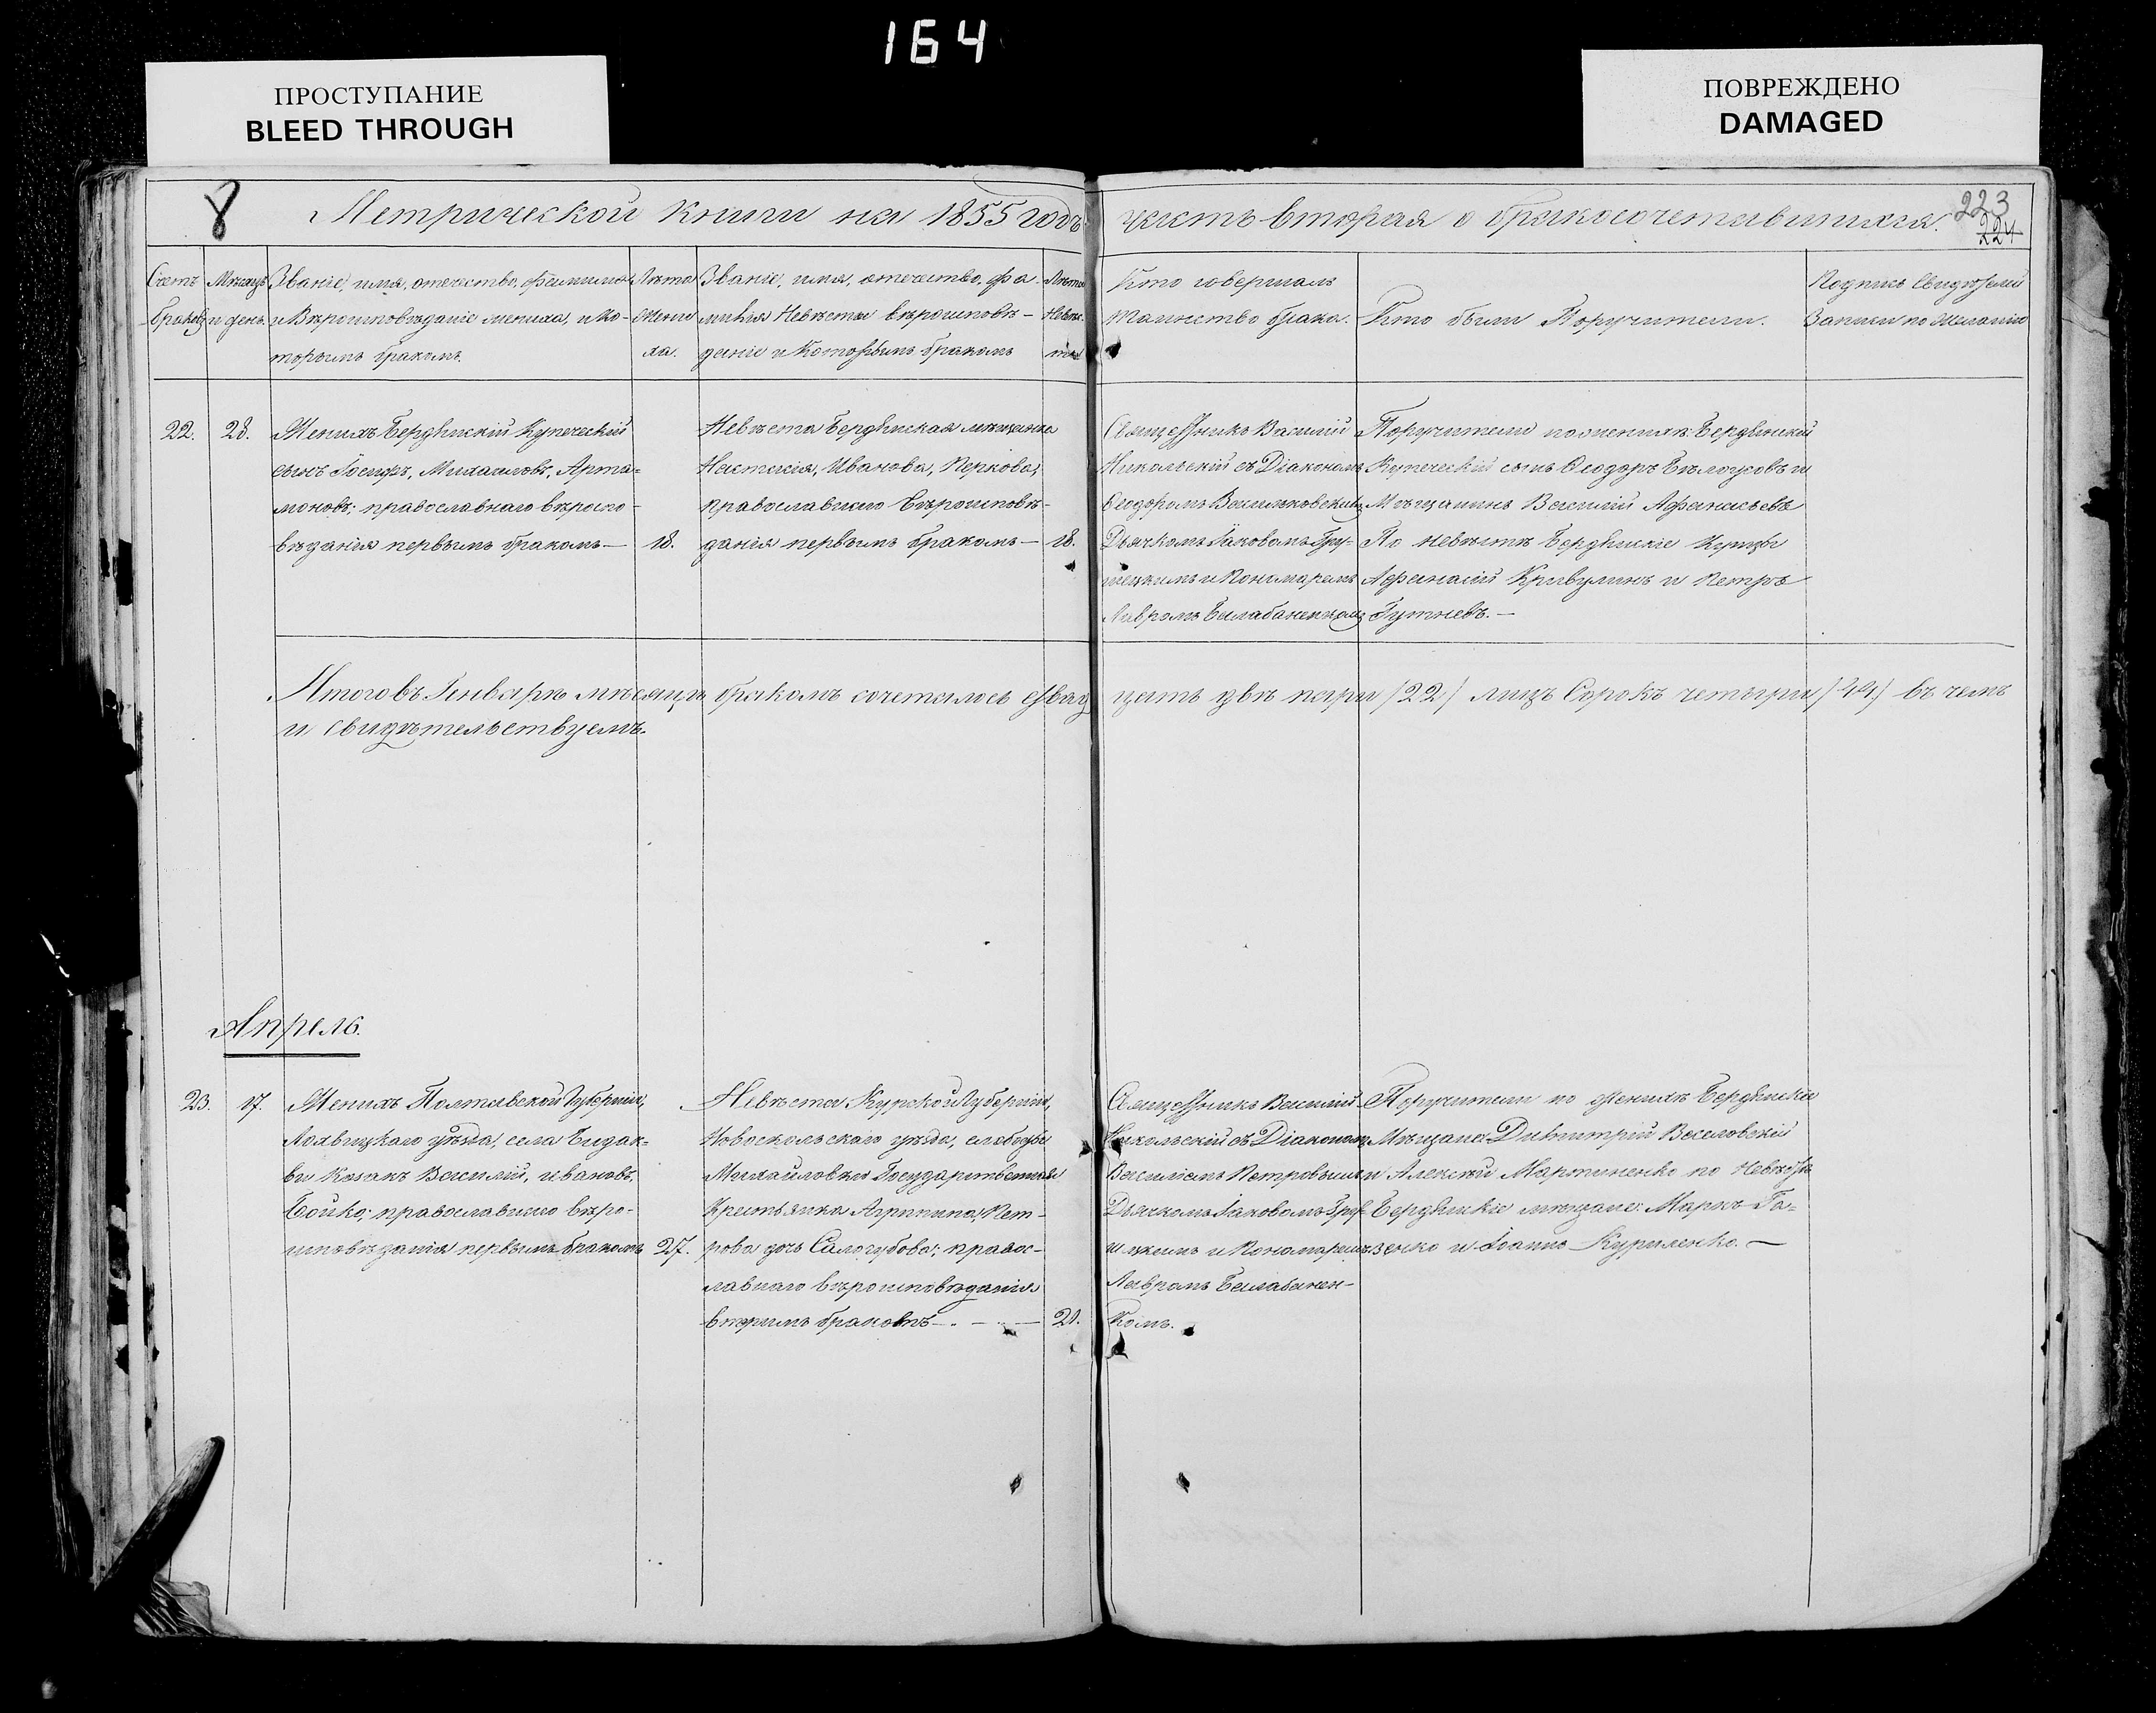 164
ПРОСТУПАНИЕ
BLEED THROUGH
ПОВРЕЖДЕНО
DAMAGED
8
Метрической книги на 1855 годъ часть вторая о бракосочетавшихся.
223
224
Счетъ
браковъ
Мѣсяцъ
и день.
Званіе, имя, отечество, фамилія
и Вѣроисповѣданіе жениха, и ко-
торымъ бракомъ.
Лѣта
жени
ха.
Званіе, имя, отечество, фа-
милія Невѣсты вѣроисповѣ-
даніе и Которымъ бракомъ
Лѣта
Невѣс
ты
Кто совершалъ
таинство брака.
Кто были Поручители.
Подпись Свидѣтелей
Записи по Желанію
22.
28.
Женихъ Бердянскій Купеческій
сынъ Іосифъ, Михаиловъ, Арта-
моновъ; православнаго вѣроиспо-
вѣданія первымъ бракомъ—
18.
Невѣста Бердянская мѣщанка
Настасія, Иванова, Перкова;
православнаго Вѣроисповѣ-
данія первымъ бракомъ—
18.
Священникъ Василій
Никольскій съ Діакономъ
Ѳеодоромъ Васильковскимъ
Дьячкомъ Іаковомъ Гру-
шецкимъ и Пономаремъ
Лавромъ Балабаненкомъ
Поручители по женихѣ: Бердянскій
Купеческій сынъ Ѳеодоръ Бѣлоусовъ и
Мѣщанинъ Василій Афанасьевъ
По невѣстѣ Бердянскіе Купцы
Афанасій Кривулинъ и Петръ
Гутневъ.—
Итого въ Генварѣ мѣсяцѣ бракомъ сочеталось двад цать двѣ пары /22/ лицъ Сорокъ четыри /44/ въ чемъ
и свидѣтельствуемъ.
Апрель.
23.
17.
Женихъ Полтавской Губерніи,
Лохвицкаго уѣзда, села
Казакъ Василій, Ивановъ,
Бойко; православнаго вѣро-
исповѣданія первымъ бракомъ
27.
Невѣста Курской Губерніи,
Новооскольскаго уѣзда, слободы
Михайловки Государственная
Крестьянка Агрипина, Пет-
рова дочь Салогубова; правос-
лавнаго вѣроисповѣданія
вторымъ бракомъ—
20.
Священникъ Василій
Никольскій съ Діакономъ
Василіемъ Петровымъ
Дьячкомъ Іаковомъ Гру-
шецкимъ и Пономаремъ
Лавромъ Балабанен-
комъ.
Поручители по женихѣ Бердянскіе
Мѣщане: Димитрій Веселовскій
и Алексѣй Мартиненко по Невѣстѣ
Бердянскіе мѣщане: Маркъ Га-
зенко и Іоаннъ Куриленко.—